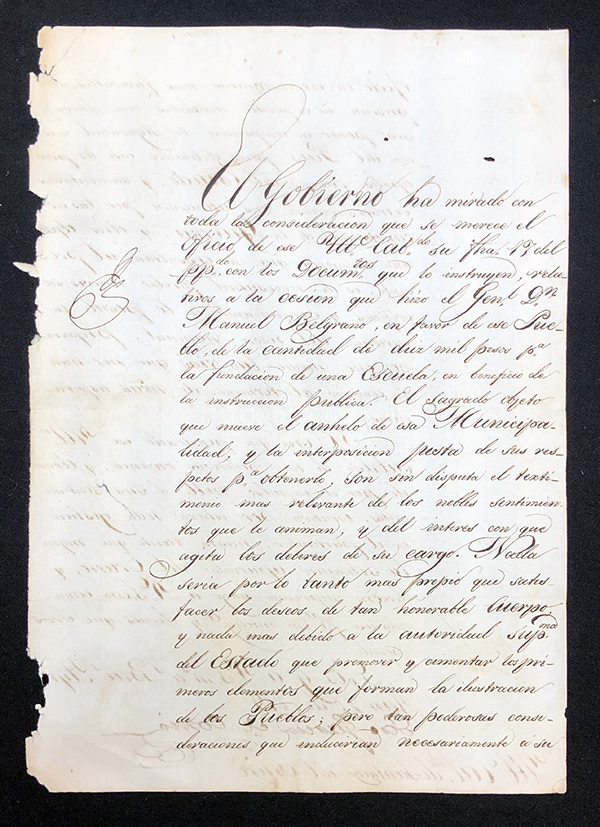 El Gobierno ha mirado con
toda la consideracion que se merece el
Oficio de ese Ytt.e Cab.do su fha. 17 del
pp.do con los Docum.tos que lo instruyen, rela-
tivos a la cesion que hizo el Gen.l D.n
Manuel Belgrano, en favor de ese Pue-
blo, de la cantidad de diez mil pesos p.a
la fundacion de una Escuela, en beneficio de
la instruccion publica. El sagrado objeto
que mueve el anhelo de esa Municipa-
lidad, y la interposicion puesta de sus res-
petos p.a obtenerlo, son sin disputa el texti-
monio mas relevante de los nobles sentimien-
tos que le animan, y del interes con que
agita los deberes de su cargo. Nada
seria por lo tanto mas propio que satis-
facer los deseos de tan honorable Cuerpo,
y nada mas debido a la autoridad Sup.ma
del Estado que promover y cimentar los pri-
meros elementos que forman la ilustracion
de los Pueblos; pero tan poderosas consi-
deraciones que inducirian necesariamente a su